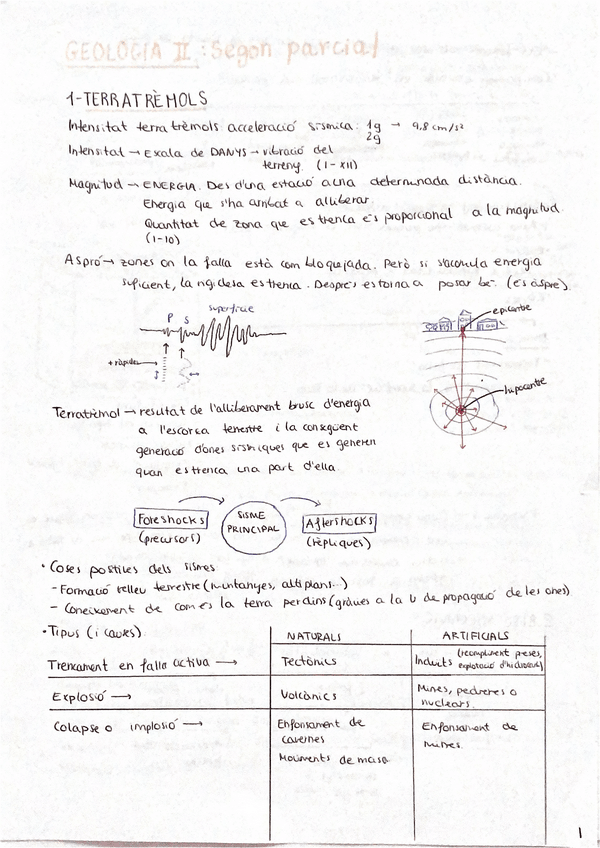 GEOLOGIA II: Segon parcial
1-TERRATRÈMOLS
Intensitat terratrèmols: acceleració sísmica: 1g → 9,8 cm/s²
2g
Intensitat → Escala de DANYS → vibració del
terreny. (I-XII)
Magnitud → ENERGIA. Des d'una estació a una determinada distància.
Energia que s'ha arribat a alliberar.
Quantitat de zona que es trenca és proporcional a la magnitud.
(1-10)
Aspró → zones on la falla està com bloquejada. Però si s'acumula energia
suficient, la rigidesa es trenca. Després es torna a posar bé. (és aspre).
P S superfície
+ ràpides
epicentre
hipocentre
Terratrèmol → resultat de l'alliberament brusc d'energia
a l'escorça terrestre i la consegüent
generació d'ones sísmiques que es generen
quan es trenca una part d'ella.
Foreshocks
(precursors)
SISME
PRINCIPAL
Aftershocks
(rèpliques)
• Coses positives dels sismes
- Formació relleu terrestre (muntanyes, altiplans...)
- Coneixement de com és la terra per dins (gràcies a la v de propagació de les ones)
• Tipus (i causes).
NATURALS ARTIFICIALS
Trencament en falla activa → Tectònics Induïts (recompliment preses,
explotació d'hidrocarb.)
Explosió → Volcànics Mines, pedreres o
nuclears.
Colapse o implosió → Enfonsament de
cavernes
Moviments de massa
Enfonsament de
mines.
1